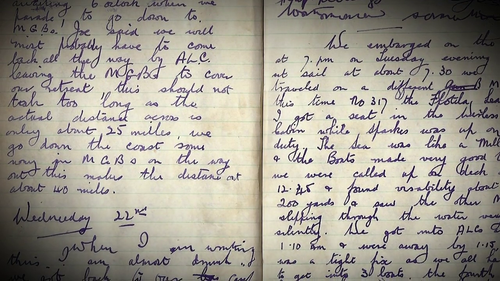 6 oclock when we
parade to go down to
M.G.Bs. Joe said we will
most probably have to come
back all the way by ALC.
leaving the MGBs to cover
our retreat this should not
take too long as the
actual distance across is
only about 25 milles, we
go down the coast some
way in M G Bs on the way
out this makes the distance out
about 40 miles.
Wednesday 22nd
When I am writing
this. I am almost
got back to
We embarged on the
at 7. pm on Tuesday evening
set sail at about 7.30 we
traveled on a different
this time No 317. the Flotila
I got a seat in the Wirless
Cabin while Sparkes was up on
duty. The Sea was like a Mill
& the Boats made very good
we were called up on deck
12.45 & found visability about
200 yards & saw the other M
slipping through the water very
silently. We got into ALCs
1.10 am & were away by 1.15
was a tight fix as we all ha
to get into 3 boats. the fourth